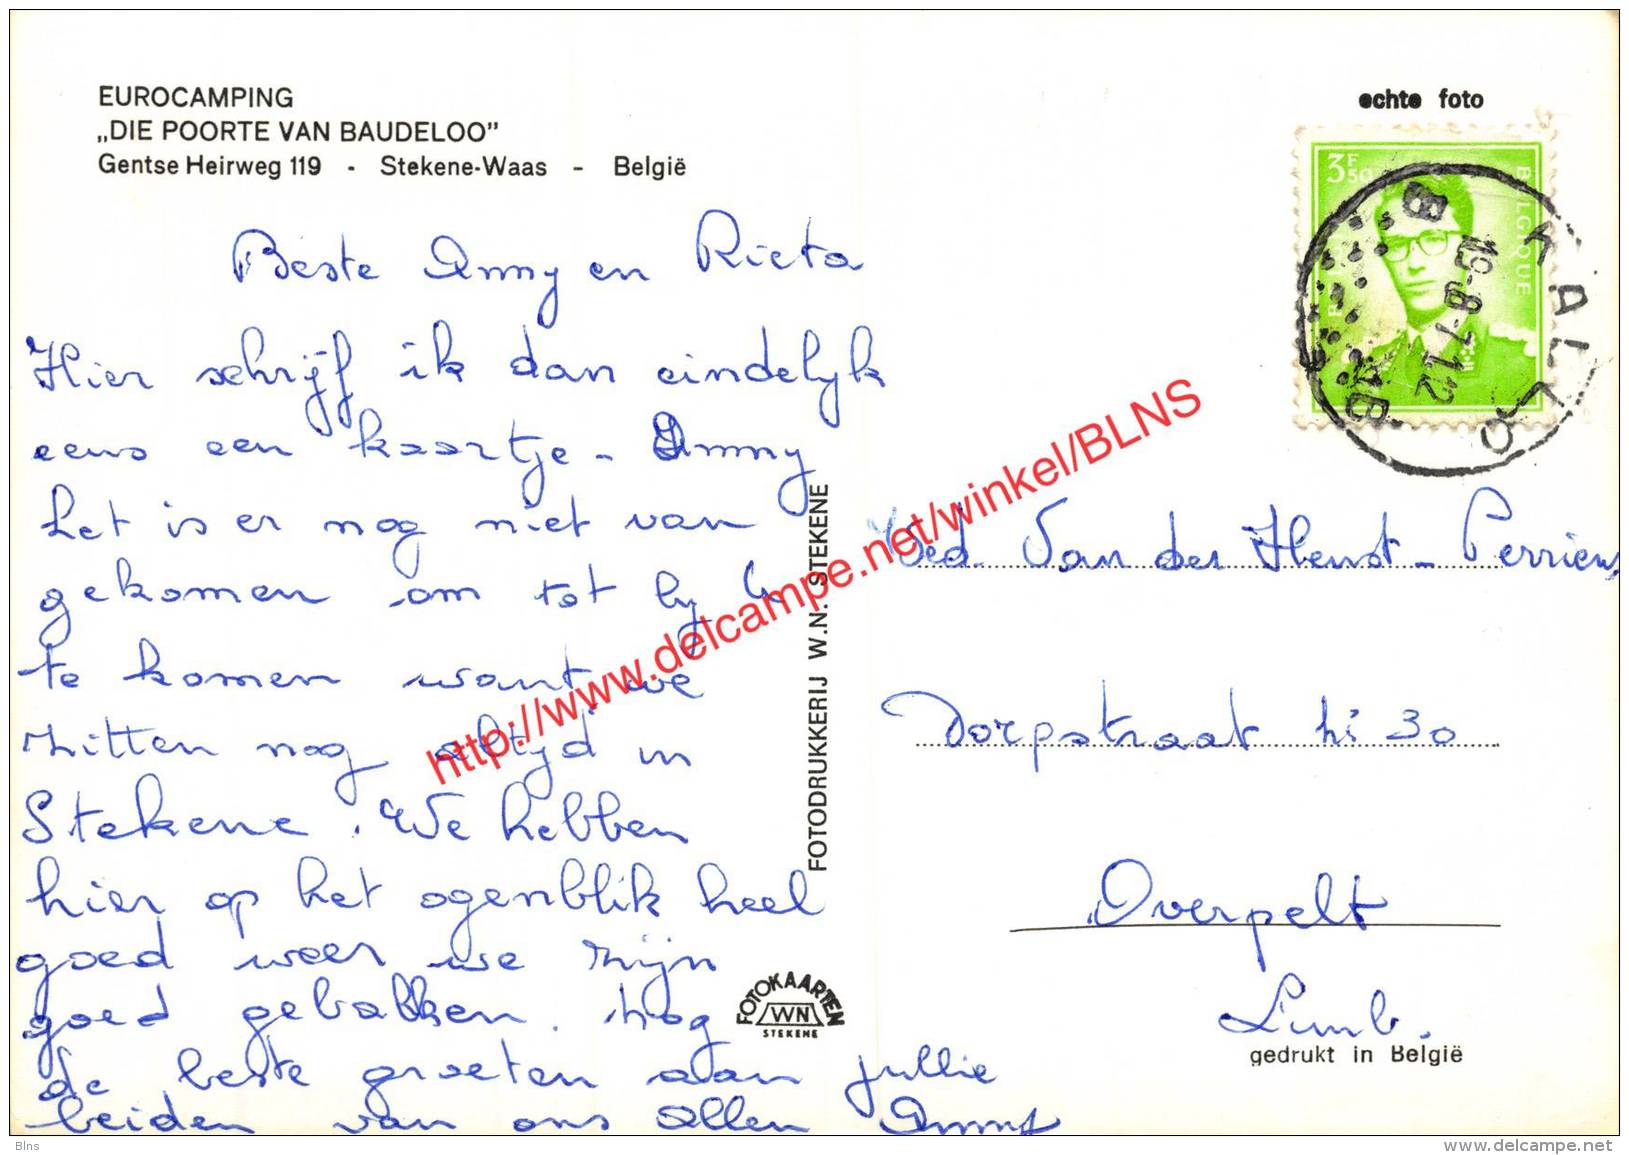 EUROCAMPING
„DIE POORTE VAN BAUDELOO”
Gentse Heirweg 119 - Stekene-Waas - België
Beste Anny en Rieta
Hier schrijf ik dan eindelyk
eens een kaartje - Anny
het is er nog niet van
gekomen om tot by U
te komen want we
zitten nog altyd in
Stekene. We hebben
hier op het ogenblik heel
goed weer we zijn
goed gebakken. Nog
de beste groeten aan jullie
beiden van ons allen
FOTODRUKKERIJ W.N. STEKENE
FOTOKAARTEN
WN
STEKENE
echte foto
3F50
BELGIQUE
KALLO
19-8-71
B
Wed. Van der Henst - Perriens
Dorpstraat 30
Overpelt
Limb.
gedrukt in België
http://www.delcampe.net/winkel/BLNS
Blns
www.delcampe.net